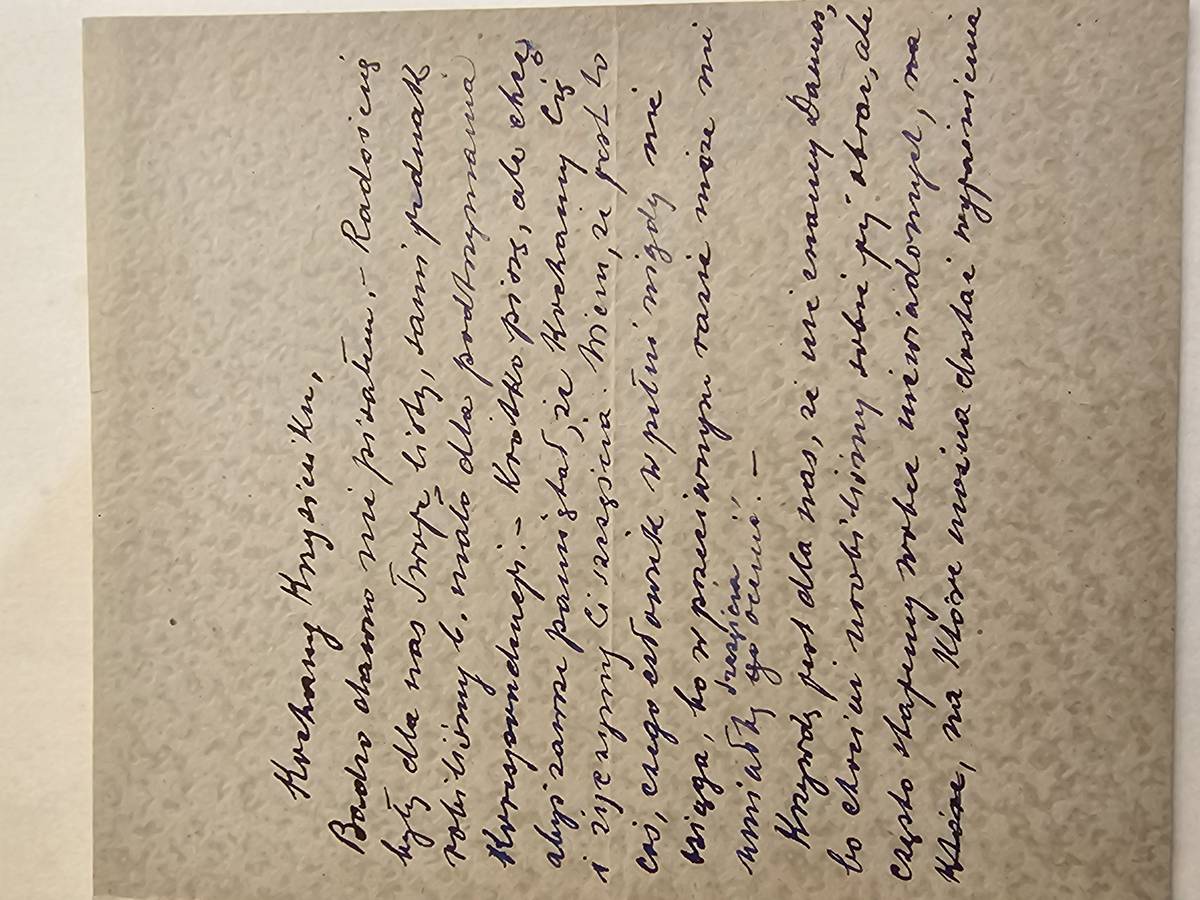 Kochany Krzysieńku,
Bardzo dawno nie pisałem. – Radością
były dla nas Twoje listy, sami jednak
robiliśmy b. mało dla podtrzymania
Korespondencji. – Krótko piszę, ale chcę
abyś zawsze pamiętał, że Kochamy Cię
i życzymy Ci szczęścia. Wiem, że jest to
coś, czego człowiek w pełni nigdy nie
osiąga, bo w przeciwnym razie może nie
umiałby szczęścia
go ocenić. –
Krzywdą jest dla nas, że nie znamy Danus,
bo choćuż urobiliśmy sobie jej obraz, ale
często stajemy wobec niewiadomych, na
które, na które można dostać wyjaśnienia